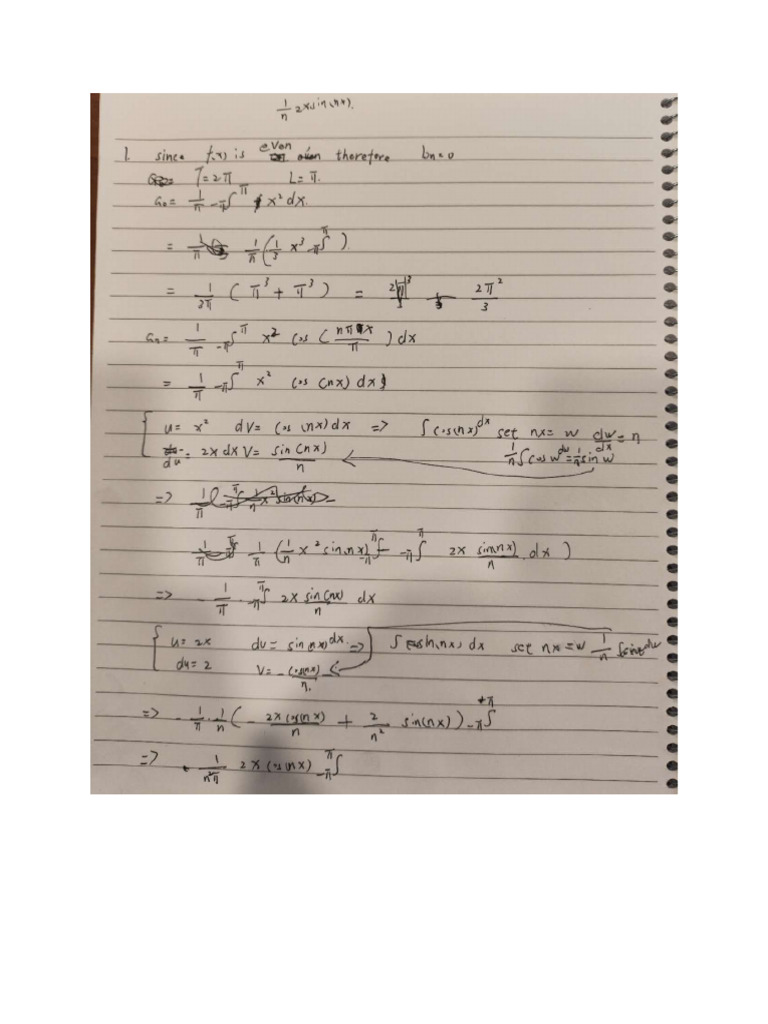 1/n 2x sin(nx).
1. since f(x) is even therefore bn=0
T=2π L=π.
a₀= 1/π -π∫π x² dx.
= 1/π (1/3 x³ -π∫π ).
= 1/2π ( π³ + π³ ) = 2π²/3
aₙ= 1/π -π∫π x² cos ( nπx/π ) dx
= 1/π -π∫π x² cos (nx) dx
u= x² dv= cos (nx) dx => ∫cos(nx) dx set nx= w dw/dx = n
du = 2x dx v= sin(nx)/n 1/n ∫cos w dw = 1/n sin w
=> 1/π
1/π ( 1/n x² sin(nx) -π∫π - -π∫π 2x sin(nx)/n dx )
=> - 1/π -π∫π 2x sin(nx)/n dx
u= 2x dv= sin(nx) dx => ∫ sin(nx) dx set nx=w 1/n ∫sin dw
du = 2 v= - cos(nx)/n.
=> - 1/π · 1/n ( - 2x cos(nx)/n + 2/n² sin(nx) ) -π∫π
=> 1/n²π 2x cos(nx) -π∫π